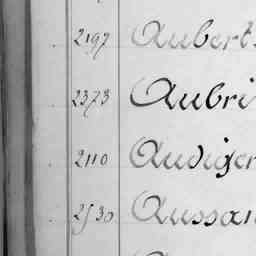 2197 Aubert
2373 Aubri
2110 Audiger
2530 Aussan